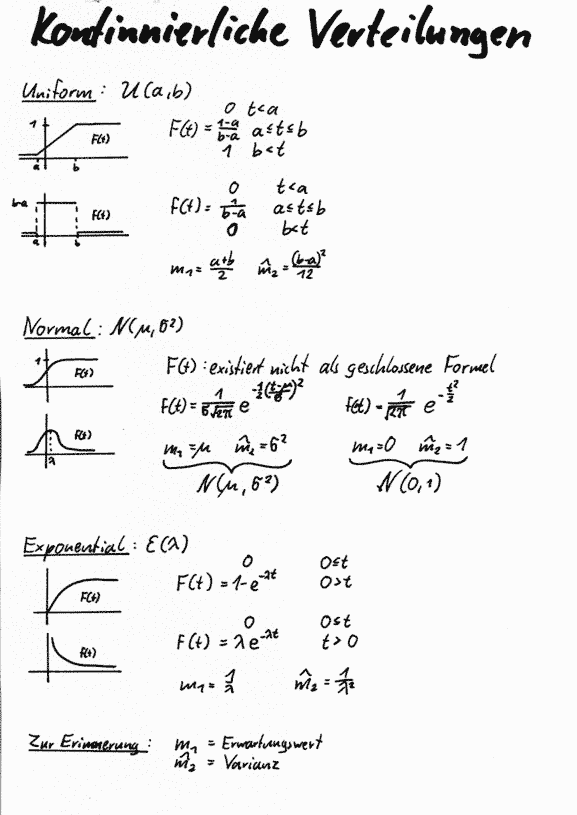 Kontinnierliche Verteilungen
Uniform: U(a,b)
1 F(t) a b
0 t<a
F(t) = 1-a/b-a a≤t≤b
1 b<t
b-a F(t) a b
0 t<a
f(t) = 1/b-a a≤t≤b
0 b<t
m₁ = a+b/2 m̂₂ = (b-a)²/12
Normal: N(μ,σ²)
1 F(t)
F(t): existiert nicht als geschlossene Formel
f(t) = 1/σ√2π e^-1/2(t-μ/σ)² f(t) = 1/√2π e^-t²/2
f(t) λ
m₁ = μ m̂₂ = σ² m₁ = 0 m̂₂ = 1
N(μ,σ²) N(0,1)
Exponential: E(λ)
0 0≤t
F(t) = 1-e^-λt 0>t
F(t)
0 0≤t
F(t) = λe^-λt t>0
f(t)
m₁ = 1/λ m̂₂ = 1/λ²
Zur Erinnerung: m₁ = Erwartungswert
m̂₂ = Varianz